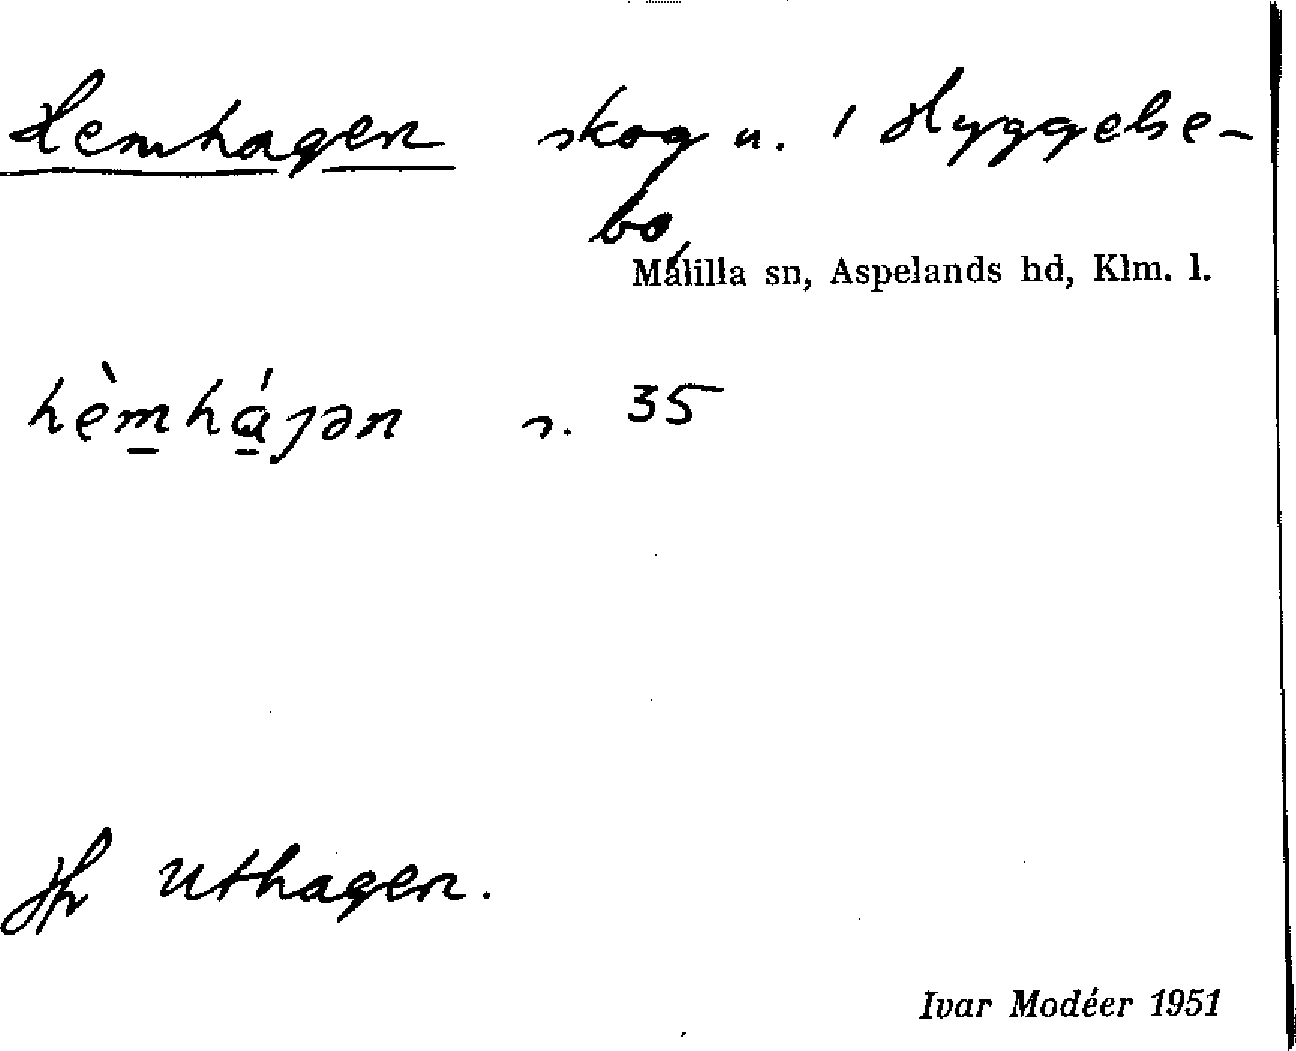 Hemhagen skog n. i Hyggelse-
bo,
Målilla sn, Aspelands hd, Klm. l.
hè̝mhájən s. 35
Jfr Uthagen.
Ivar Modéer 1951